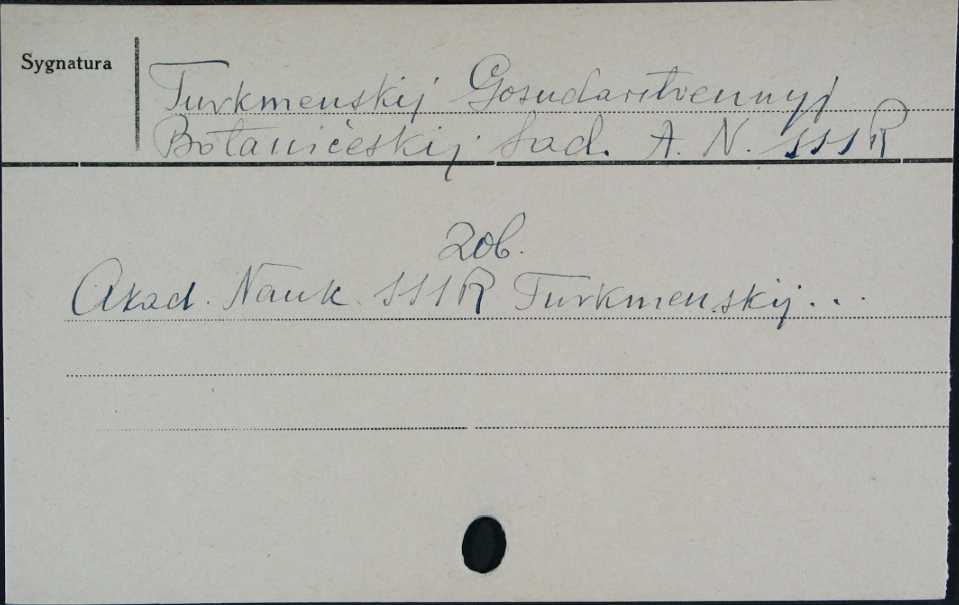 Sygnatura
Turkmenskij Gosudarstvennyj
Botaničeskij Sad. A. N. SSSR
Zob.
Akad. Nauk. SSSR Turkmenskij...